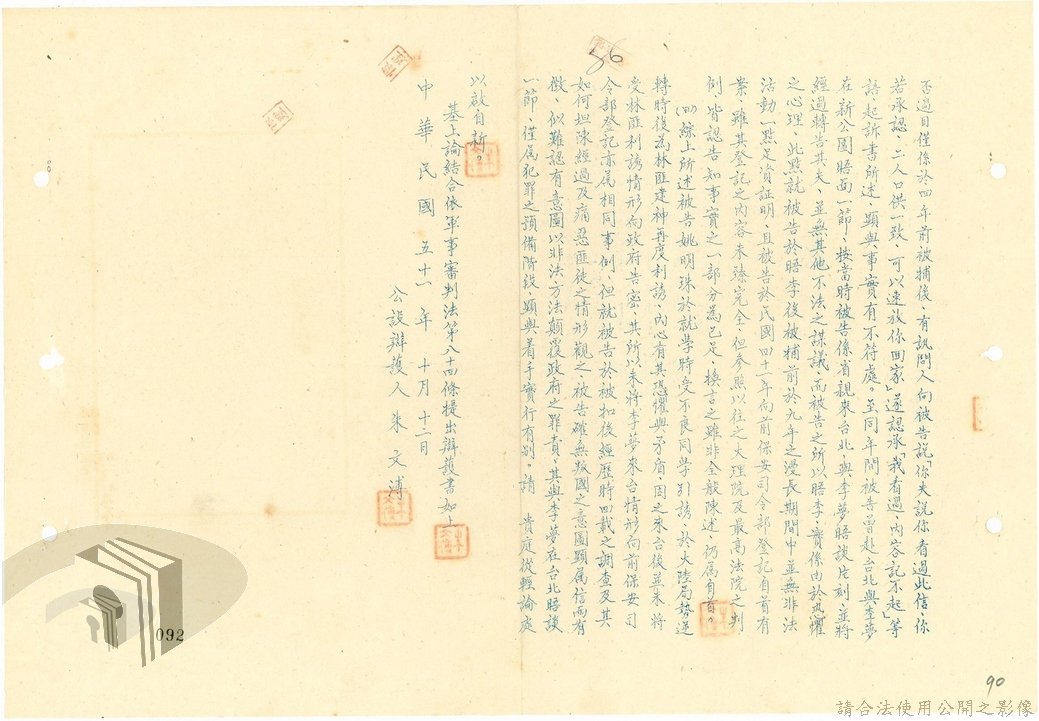 否過目僅係於四年前被捕後、有訊問人向被告説「你夫説你看過此信、你
若承認、二人口供一致、可以速放你回家」遂認承「我看過、內容記不起」等
語、起訴書所述、顯與事實有不符處。至同年間被告曾赴台北與李夢
在新公園晤面一節、按當時被告係省親來台北、與李夢晤談片刻、並將
經過轉告其夫、並無其他不法之謀議、而被告之所以晤李、實係由於恐懼
之心理、此點就被告於晤李後被捕前於九年之漫長期間中並無非法
活動一點足資証明、且被告於民國四十一年向前保安司令部登記自首有
案、雖其登記之內容未臻完全、但參照以往之大理院及最高法院之判
例、皆認告知事實之一部分為已足、換言之雖非全般陳述、仍属自首。
(四)綜上所述被告姚明珠於就學時受不良同學引誘、於大陸局勢逆
轉時後為林匪建神再度利誘、內心有其恐懼與矛盾、因之來台後並未將
受林匪利誘情形向政府告密、其所以未將李夢來台情形向前保安司
令部登記亦属相同事例、但就被告於被扣後經歷時四載之調查及其
如何坦陳經過及痛惡匪徒之情形觀之、被告確無叛國之意圖顕属信而有
徵、似難認有意圖以非法方法顛覆政府之罪責、其與李夢在台北晤談
一節、僅属犯罪之預備階段、顕與着手實行有別。請 貴庭從輕論處
以啟自新。
基上論結合依軍事審判法第八十四條提出辯護書如上
中華民國五十一年十月十二日
公設辯護人朱文溥
56
092
90
請合法使用公開之影像